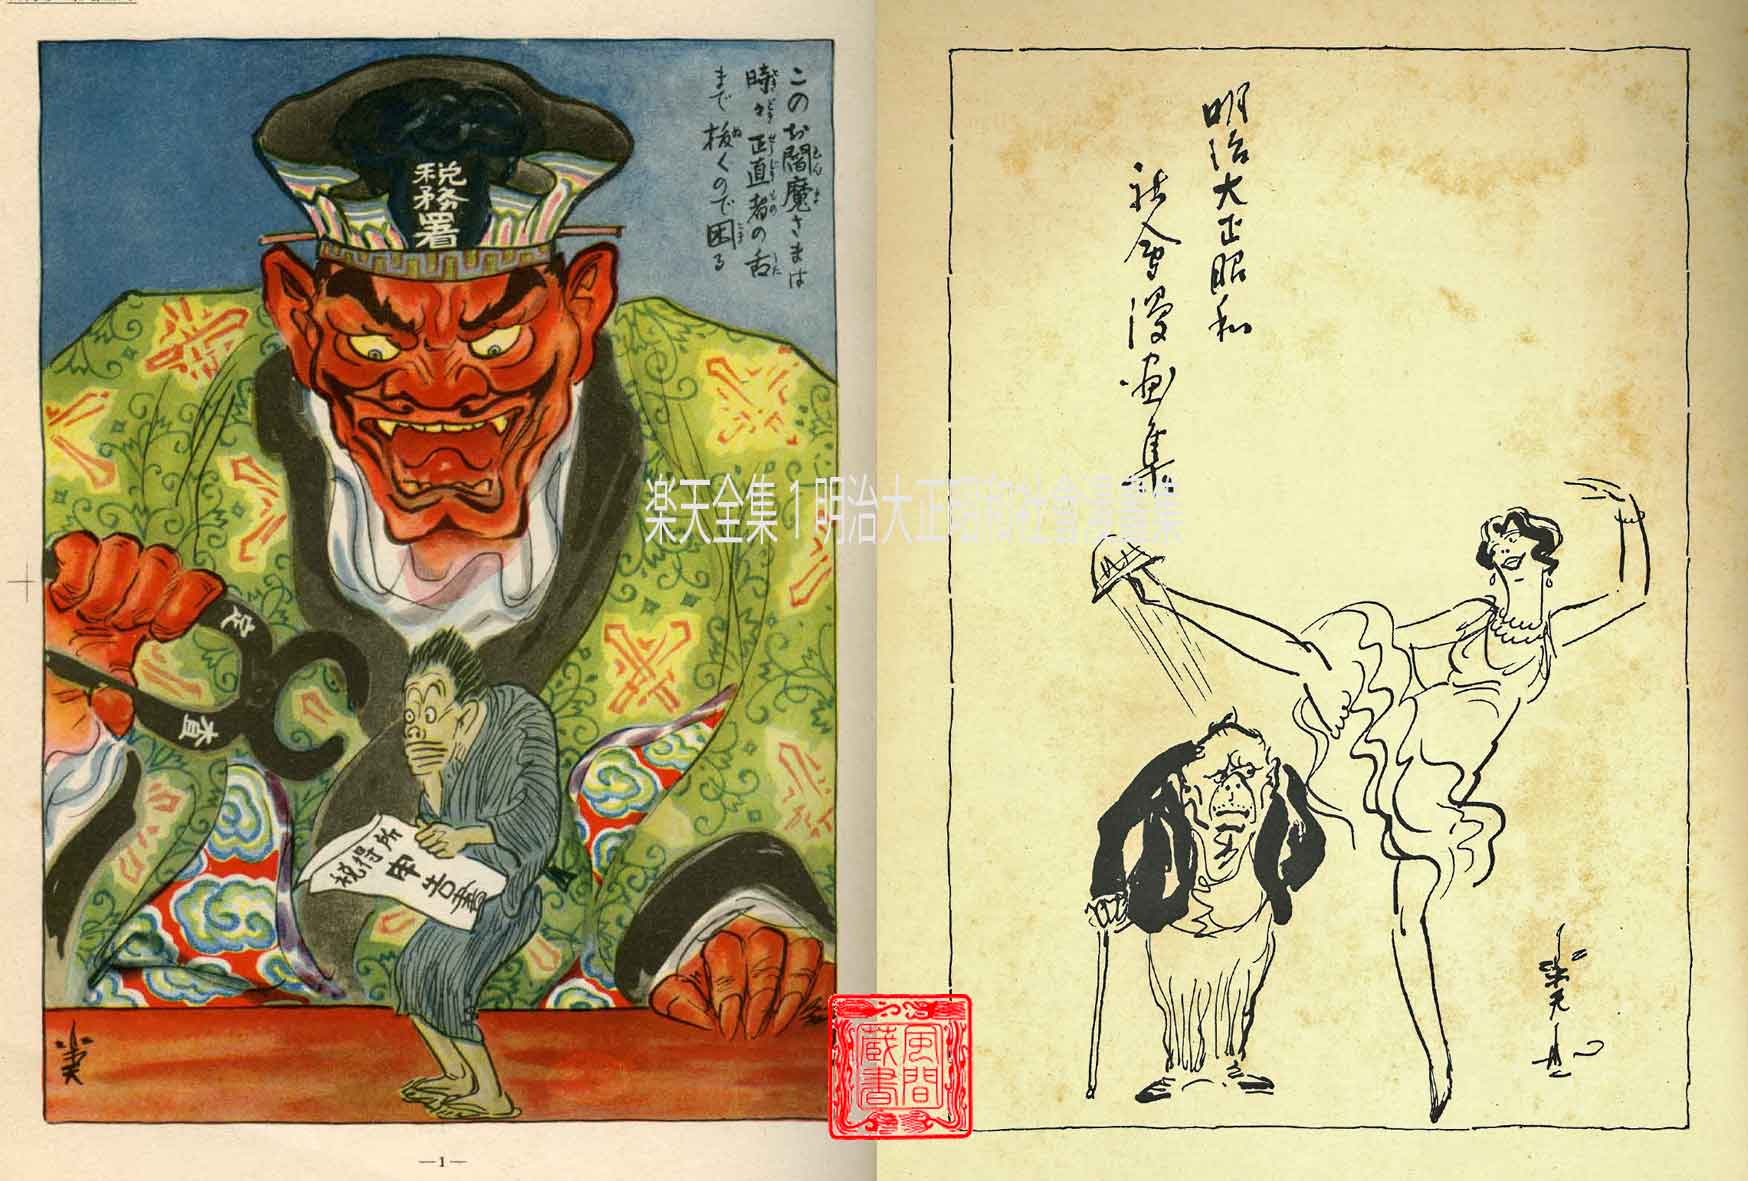 このお閻魔さまは
時々正直者の舌
まで抜くので困る
税務署
査定
所得税
申告書
楽天
—1—
明治大正昭和
社会漫画集
楽天
楽天全集1明治大正昭和社會漫畫集
風間
蔵書